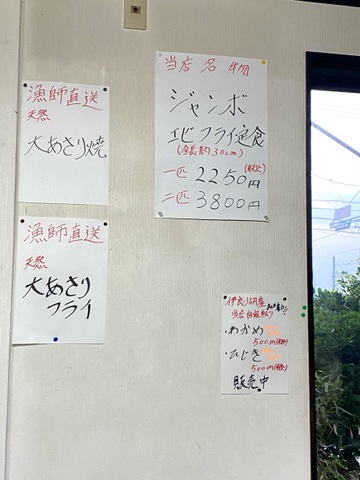 漁師直送
天然
大あさり焼
漁師直送
天然
大あさり
フライ
当店名物
ジャンボ
エビフライ定食
(全長約30cm)
一匹 2250円 (税込)
二匹 3800円
伊良湖産
当店自家採り
・わかめ
500円(税込)
・ひじき
500円(税込)
販売中